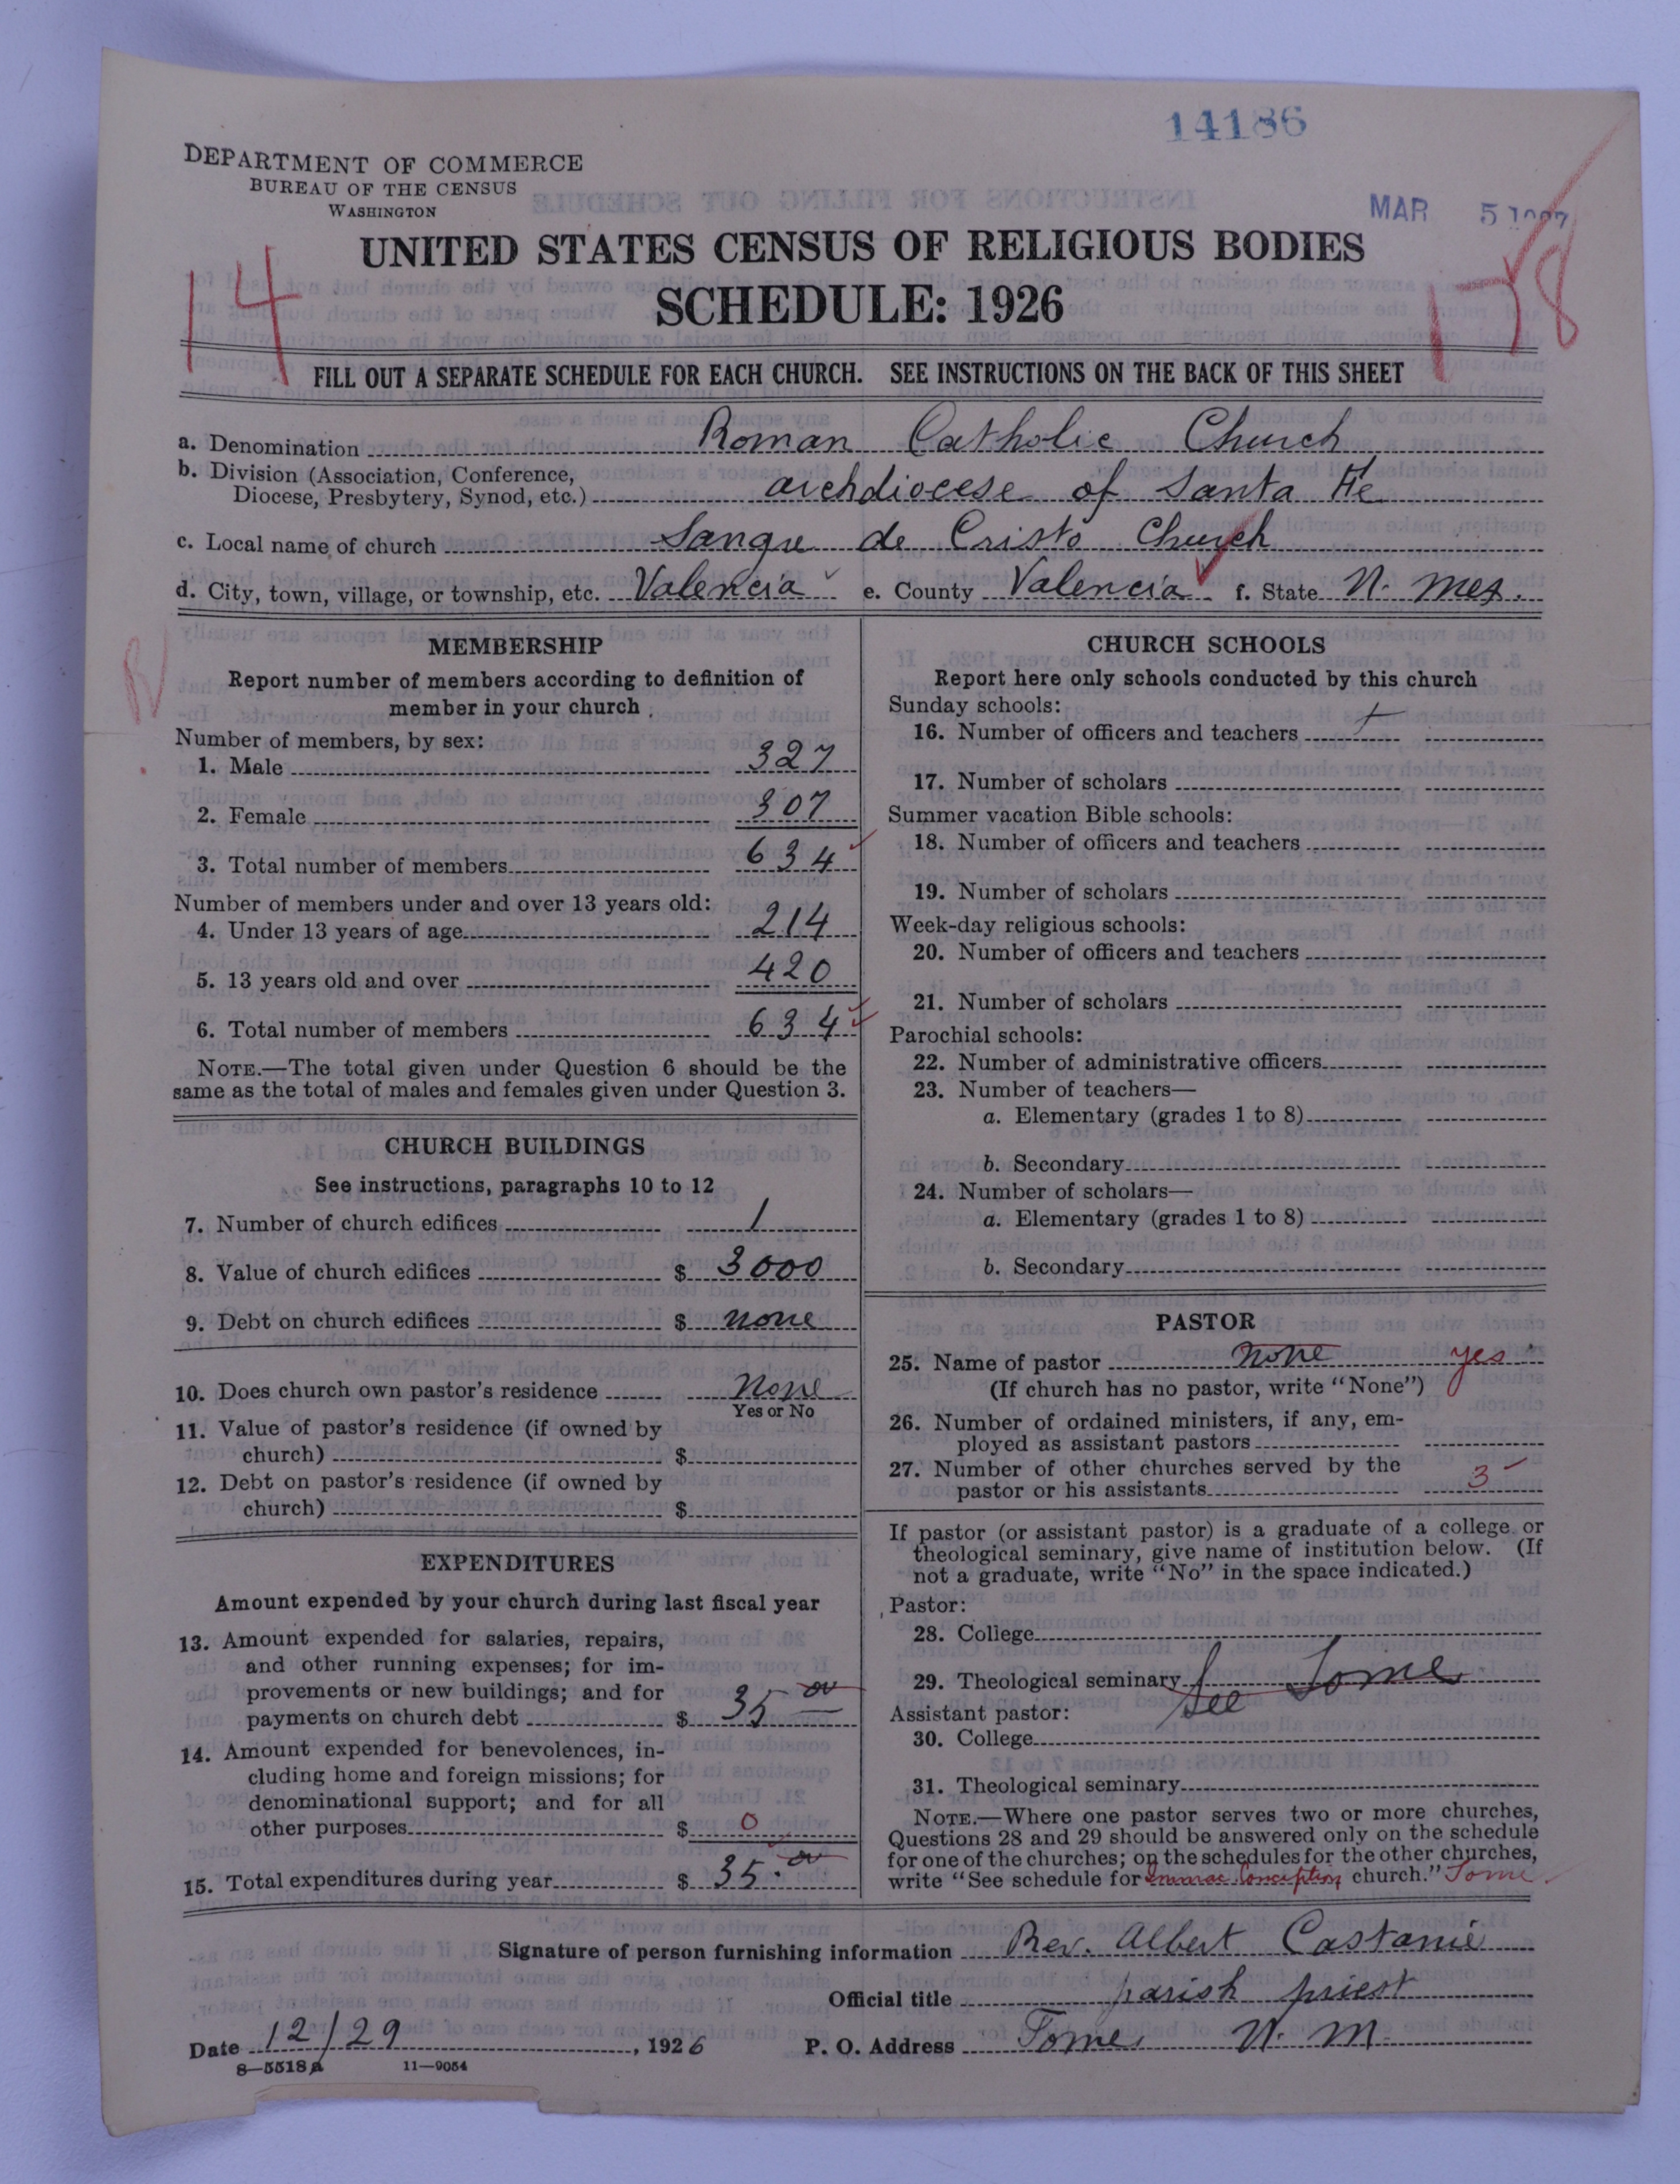 14186
DEPARTMENT OF COMMERCE
BUREAU OF THE CENSUS
WASHINGTON
MAR 5 1927
UNITED STATES CENSUS OF RELIGIOUS BODIES
SCHEDULE: 1926
14
178
FILL OUT A SEPARATE SCHEDULE FOR EACH CHURCH. SEE INSTRUCTIONS ON THE BACK OF THIS SHEET
a. Denomination Roman Catholic Church
b. Division (Association, Conference,
Diocese, Presbytery, Synod, etc.) archdiocese of Santa Fe
c. Local name of church Sangre de Cristo Church
d. City, town, village, or township, etc. Valencia e. County Valencia f. State N. Mex.
MEMBERSHIP
Report number of members according to definition of
member in your church
Number of members, by sex:
1. Male 327
2. Female 307
3. Total number of members 634
Number of members under and over 13 years old:
4. Under 13 years of age 214
5. 13 years old and over 420
6. Total number of members 634
NOTE.—The total given under Question 6 should be the
same as the total of males and females given under Question 3.
CHURCH BUILDINGS
See instructions, paragraphs 10 to 12
7. Number of church edifices 1
8. Value of church edifices $ 3000
9. Debt on church edifices $ none
10. Does church own pastor's residence None
Yes or No
11. Value of pastor's residence (if owned by
church) $
12. Debt on pastor's residence (if owned by
church) $
EXPENDITURES
Amount expended by your church during last fiscal year
13. Amount expended for salaries, repairs,
and other running expenses; for im-
provements or new buildings; and for
payments on church debt $ 35 00
14. Amount expended for benevolences, in-
cluding home and foreign missions; for
denominational support; and for all
other purposes $ 0
15. Total expenditures during year $ 35.00
CHURCH SCHOOLS
Report here only schools conducted by this church
Sunday schools:
16. Number of officers and teachers
17. Number of scholars
Summer vacation Bible schools:
18. Number of officers and teachers
19. Number of scholars
Week-day religious schools:
20. Number of officers and teachers
21. Number of scholars
Parochial schools:
22. Number of administrative officers
23. Number of teachers—
a. Elementary (grades 1 to 8)
b. Secondary
24. Number of scholars—
a. Elementary (grades 1 to 8)
b. Secondary
PASTOR
25. Name of pastor None yes
(If church has no pastor, write "None")
26. Number of ordained ministers, if any, em-
ployed as assistant pastors
27. Number of other churches served by the
pastor or his assistants 3
If pastor (or assistant pastor) is a graduate of a college or
theological seminary, give name of institution below. (If
not a graduate, write "No" in the space indicated.)
Pastor:
28. College
29. Theological seminary See Tome
Assistant pastor:
30. College
31. Theological seminary
NOTE.—Where one pastor serves two or more churches,
Questions 28 and 29 should be answered only on the schedule
for one of the churches; on the schedules for the other churches,
write "See schedule for Immac. Conception church." Tome
Signature of person furnishing information Rev. Albert Castanie
Official title parish priest
Date 12/29, 1926 P. O. Address Tome, N. M.
8—5518a 11—9054